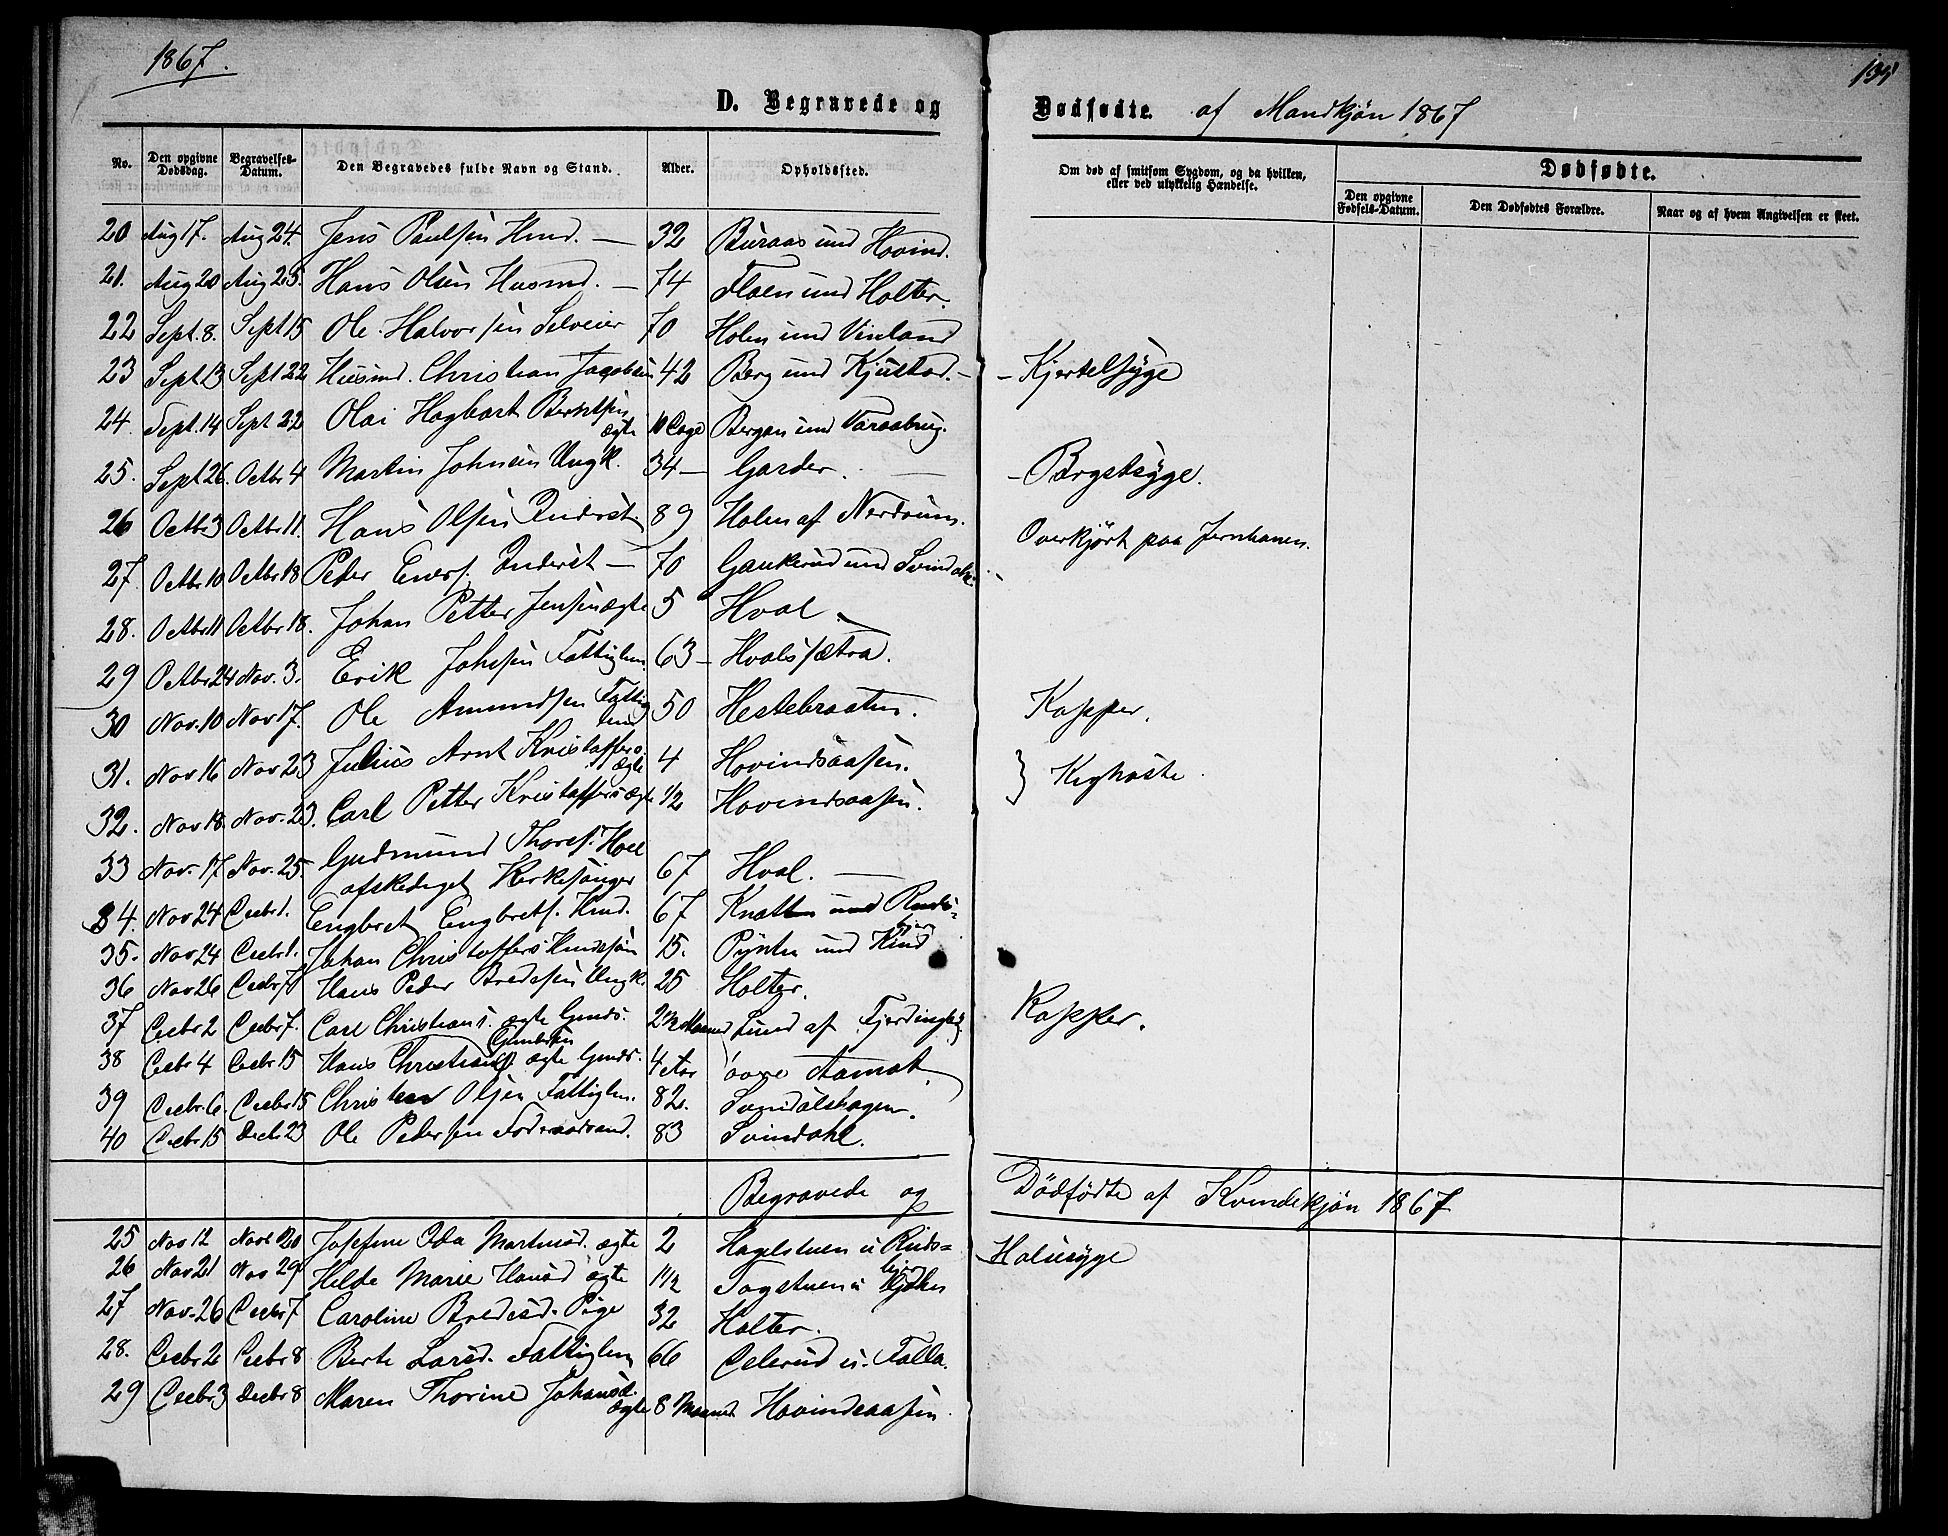 1867.
135
D. Begravede og Dødfødte. af Mandkjøn 1867
No. Den opgivne Dødsdag. Begravelses-Datum. Den Begravedes fulde Navn og Stand. Alder. Opholdssted. Om død af smitsom Sygdom, og da hvilken, eller ved ulykkelig Hændelse. Dødfødte.
Den opgivne Fødsels-Datum. Den Dødfødtes Forældre. Naar og af hvem Angivelsen er skeet.
20 Aug 17. Aug 24. Jens Paulsen Hmd. — 32 Buraas und Hovind.
21. Aug 20 Aug 25. Hans Olsen Husmd. — 74 Floen und Holter.
22 Sept. 8. Sept 15 Ole Halvorsen Selveier 70 Holen und Vinland
23 Sept 13 Sept 22 Husmd. Christian Jacobsen 42 Berg und Kjustad. — Kjertelsyge
24. Sept. 14 Sept 22 Olai Hagbart Berntsen ægte 10 Dage Bergan und Varaabrug.
25. Sept 26. Octbr 4 Martin Johnsen Ungk. 34 — Garder. — Brystsyge.
26 Octbr 3 Octbr 11. Hans Olsen Inderst. 89 Holen af Nerdrum. Overkjørt paa Jernbanen.
27. Octbr 10 Octbr 18 Peder Evers. Inderst — 70 Gaukerud und Svindahl.
28. Octbr 11 Octbr 18. Johan Petter Jensen ægte 5 Hval
29 Octbr 24 Nov. 3. Erik Johsen Fattiglem. 63 — Hvalssætra.
30 Nov. 10 Nov 17. Ole Amundsen Fattiglem 50 Hestebraaten. Kopper.
31. Nov 16 Nov 23 Julius Arnt Kristoffers. ægte 4 Hovindsaasen. } Kighoste
32. Nov 18 Nov. 23. Carl Petter Kristoffers ægte 1/2 Hovindsaasen.
33 Nov. 17 Nov. 25. Gudmund Thores. Hval
afskediget Kirkesanger 67 Hval. —
34. Nov 24 Decbr 1. Engbret Engbrets. Hmd. 67 Knatten und Rudsbjer
35. Nov 24 Decbr 1. Johan Christoffers Hmdssøn 15. Pynten und Hind
36 Nov 26 Decbr 7 Hans Peder Bredesen Ungk. 25 Holter.
37 Decbr 2 Decbr 7. Carl Christians. ægte Gmds. 2 1/2 Maaned Lund af Fjerdingby Kopper.
38 Decbr 4 Decbr 15 Hans Christian Gunbersen ægte Gmds. 4 Aar øvre Aamot
39 Decbr 6 Decbr 15 Christen Olsen Fattiglem. 82. Svindalshagen.
40 Decbr 15 Decbr 23 Ole Pedersen Føderaadsmd. 83 Svindahl.
Begravede og Dödfödte af Kvindekjön 1867
25 Nov 12 Nov 20 Josefine Oda Martinsd. ægte 2 Hagelstuen u Rudsbjer Halssyge
26 Nov 21 Nov 29 Helde Marie Hansd ægte 1 1/2 Togstuen u
27 Nov. 26 Decbr 7 Caroline Bredesd. Pige 32 Holter.
28. Decbr 2 Decbr 8 Berte Larsd. Fattiglem 66 Delerud u. Falla.
29 Decbr 3 Decbr 8 Maren Thorine Johansd. ægte 8 Maaned Hovindsaasen